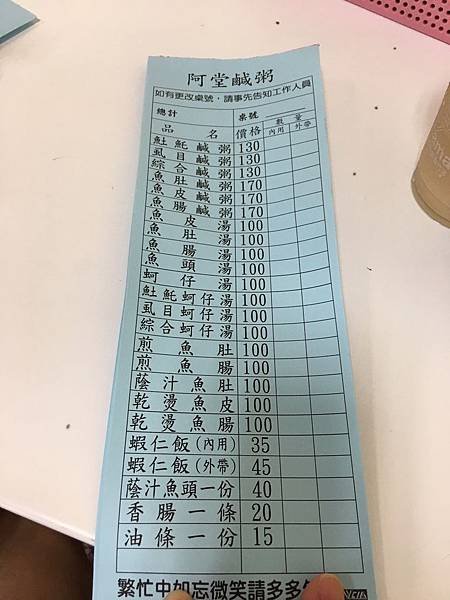 阿堂鹹粥
如有更改桌號，請事先告知工作人員
總計 桌號
品名 價格 數量
內用 外帶
䰾魠鹹粥 130
虱目鹹粥 130
綜合鹹粥 130
魚肚鹹粥 170
魚皮鹹粥 170
魚腸鹹粥 170
魚皮湯 100
魚肚湯 100
魚腸湯 100
魚頭湯 100
蚵仔湯 100
䰾魠蚵仔湯 100
虱目蚵仔湯 100
綜合蚵仔湯 100
煎魚肚 100
煎魚腸 100
蔭汁魚肚 100
乾燙魚皮 100
乾燙魚腸 100
蝦仁飯(內用) 35
蝦仁飯(外帶) 45
蔭汁魚頭一份 40
香腸一條 20
油條一份 15
繁忙中如忘微笑請多多